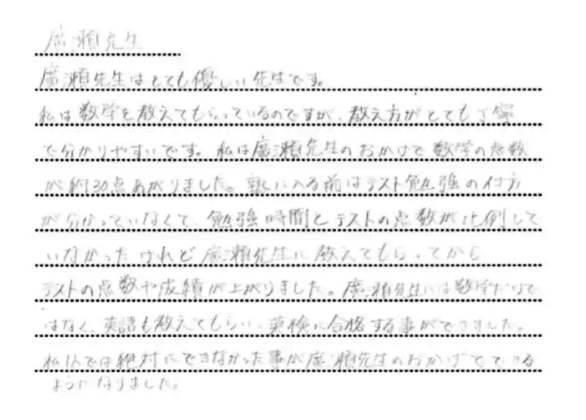 廣瀬先生
廣瀬先生はとても優しい先生です。
私は数学を教えてもらっているのですが、教え方がとても丁寧
で分かりやすいです。私は廣瀬先生のおかげで数学の点数
が約30点あがりました。塾に入る前はテスト勉強の仕方
が分かっていなくて、勉強時間とテストの点数が比例して
いなかったけれど廣瀬先生に教えてもらってから
テストの点数や成績が上がりました。廣瀬先生には数学だけで
はなく、英語も教えてもらい、英検に合格する事ができました。
私1人では絶対にできなかった事が廣瀬先生のおかげでできる
ようになりました。